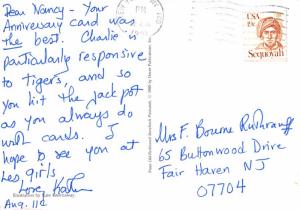 Dear Nancy - Your
Anniversary card was
the best. Charlie is
particularly responsive
to tigers, and so
you hit the jackpot
as you always do
with cards. I
hope to see you at
Les girls
Love,
Aug. 11th
PM
USA
19c
Sequoyah
Mrs F. Bourne Ruthrauff
65 Buttonwood Drive
Fair Haven NJ
07704